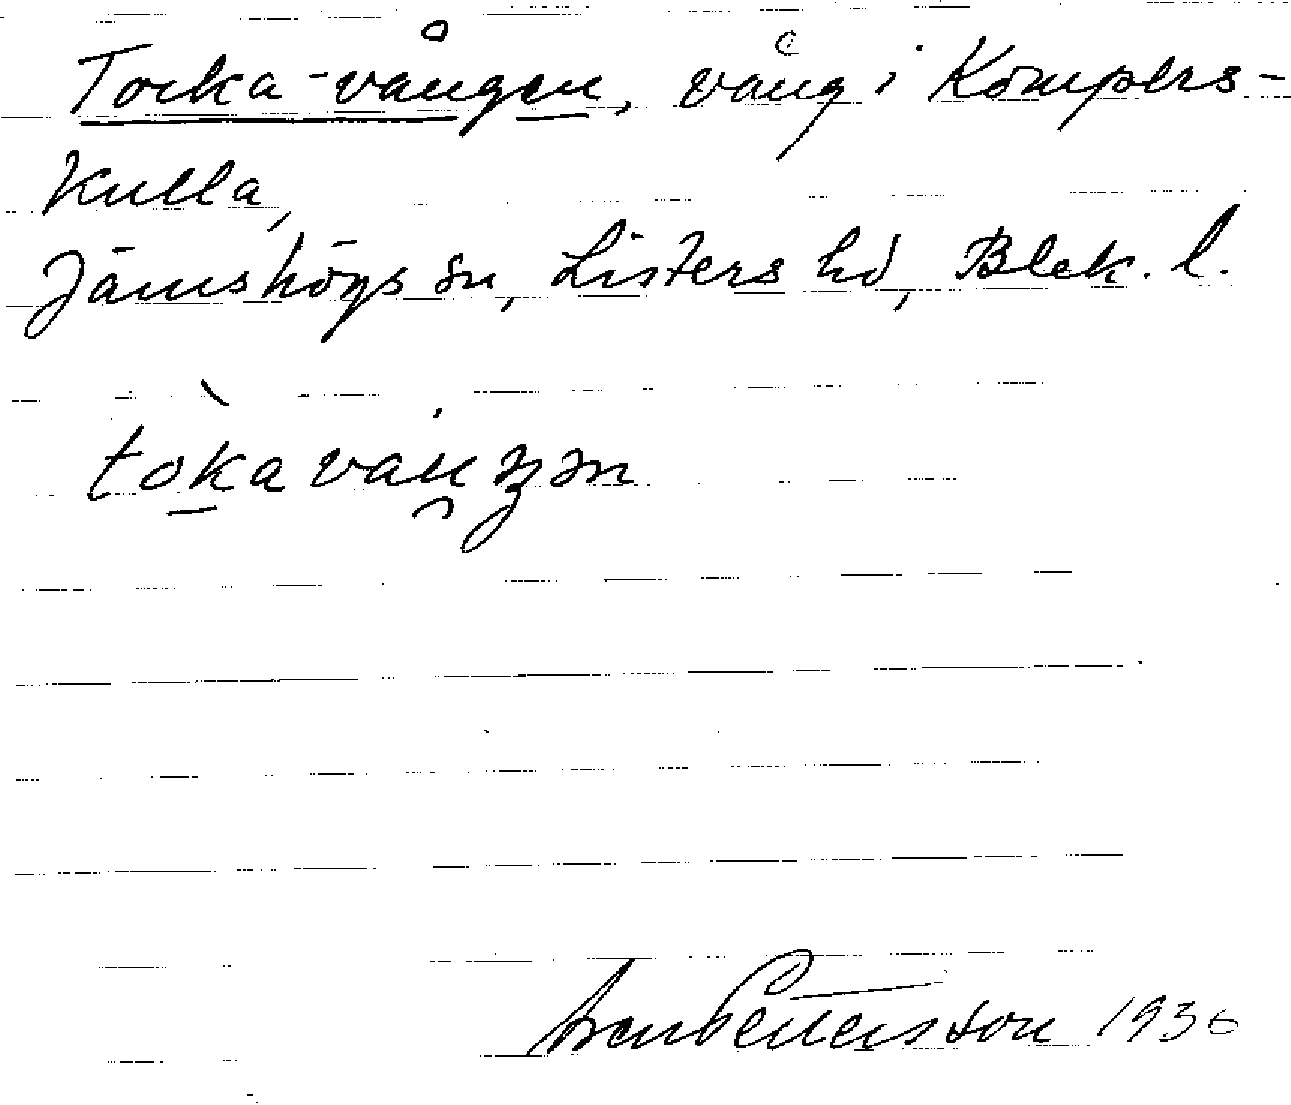 Tocka-vången, vång i Kämpers-
kulla,
Jämshögs sn, Listers hd, Blek. l.
tòkavåŋən
Pettersson 1936